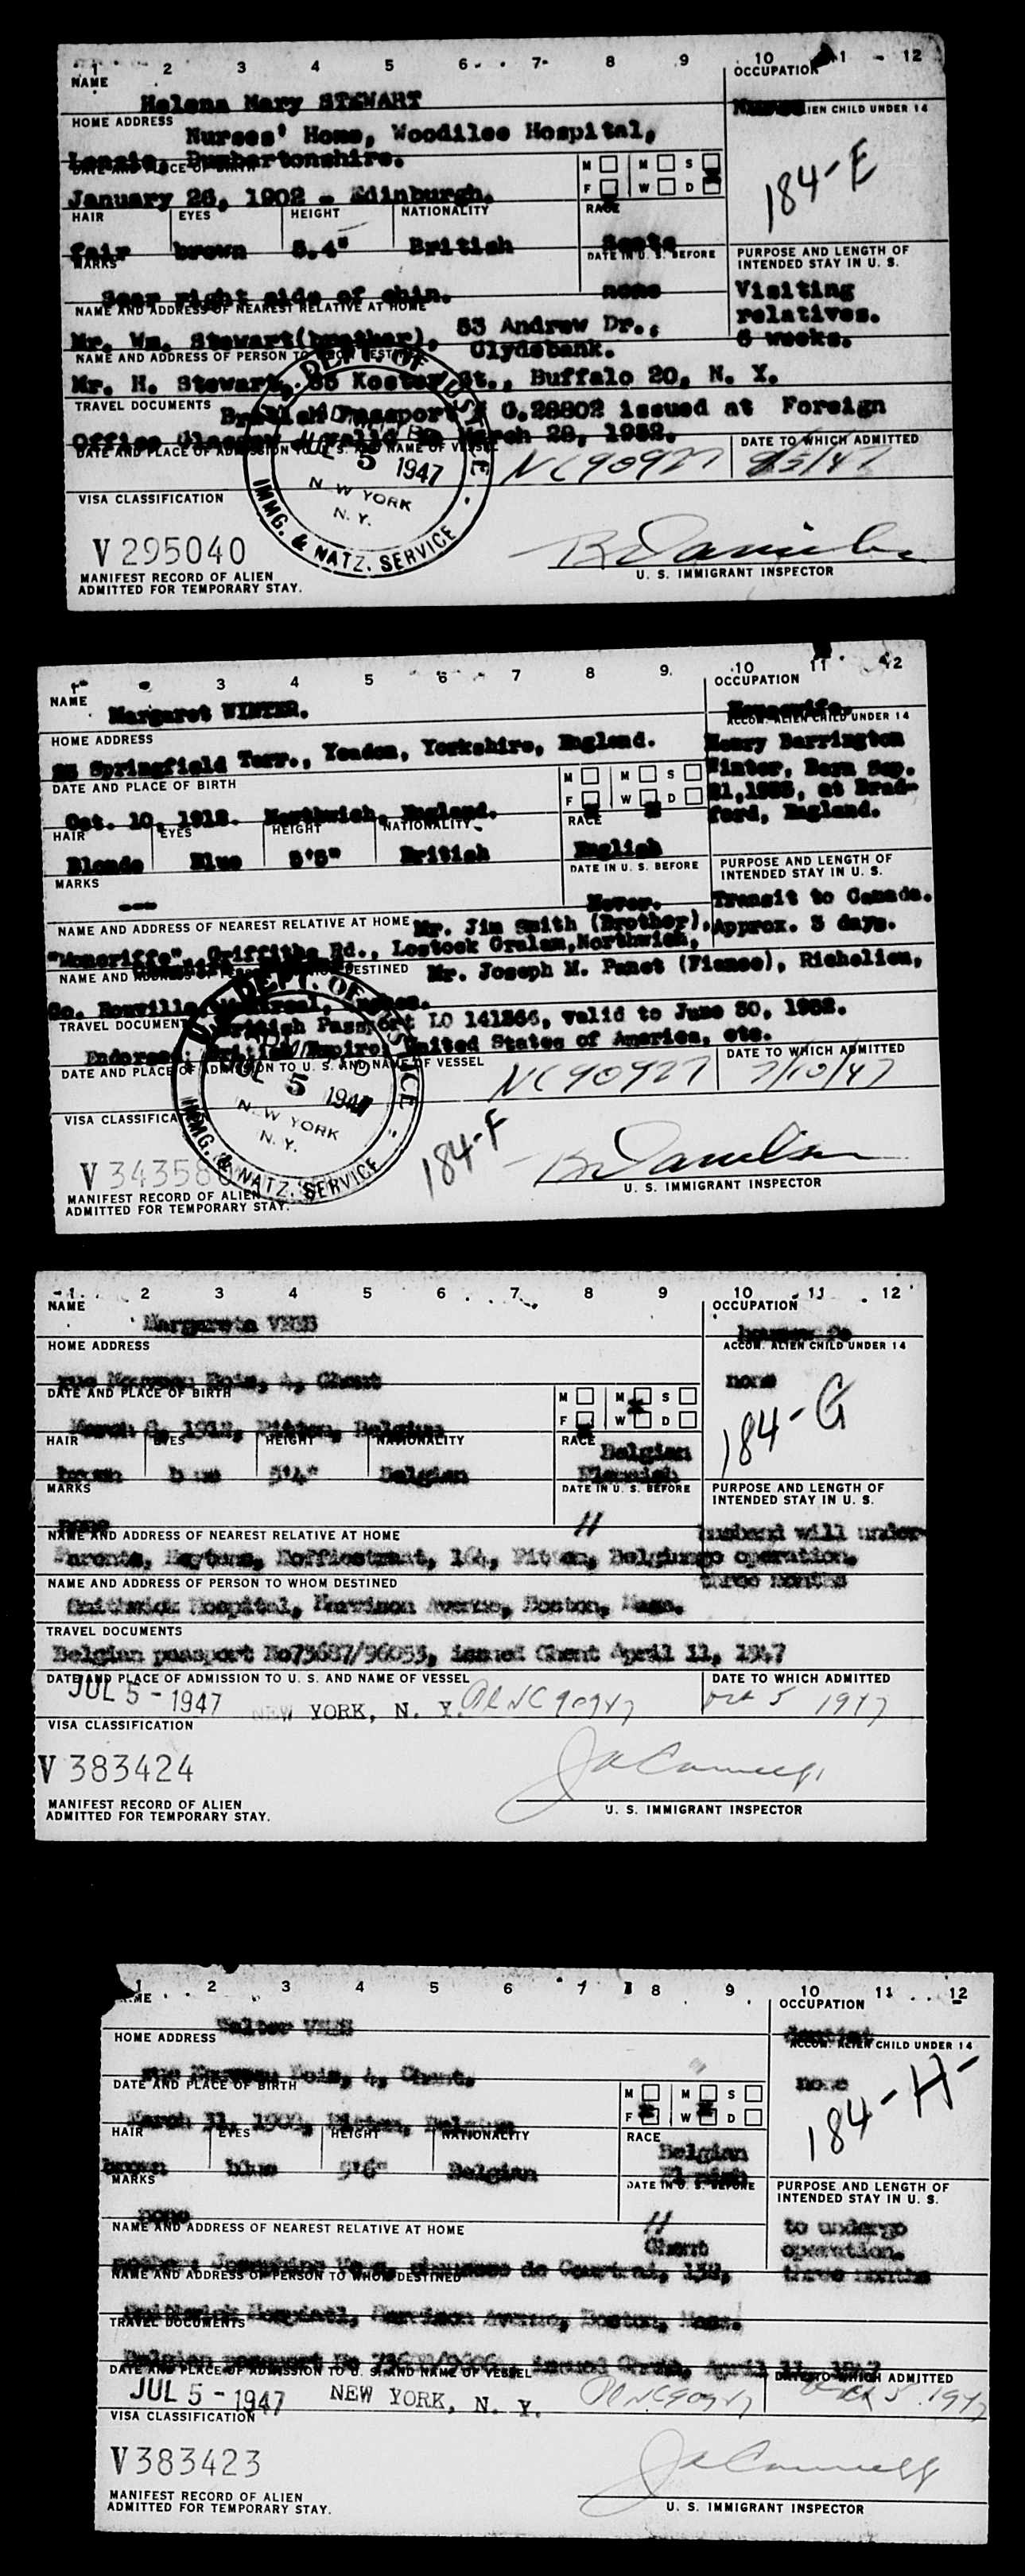 1 2 3 4 5 6 7 8 9 10 11 12
NAME
OCCUPATION
Helena Mary STEWART
Nurse
ALIEN CHILD UNDER 14
HOME ADDRESS
Nurses' Home, Woodilee Hospital,
Lenzie, Dumbartonshire.
M M S
F W D
184-E
January 26, 1902 - Edinburgh.
HAIR EYES HEIGHT NATIONALITY RACE
fair brown 5.4" British Scots
MARKS
DATE IN U. S. BEFORE
PURPOSE AND LENGTH OF
INTENDED STAY IN U. S.
Scar right side of chin. none
Visiting
relatives.
6 weeks.
NAME AND ADDRESS OF NEAREST RELATIVE AT HOME
Mr. Wm. Stewart(brother), 53 Andrew Dr.,
Clydebank.
NAME AND ADDRESS OF PERSON TO WHOM DESTINED
Mr. H. Stewart, Koster St., Buffalo 20, N. Y.
TRAVEL DOCUMENTS
British Passport C.28802 issued at Foreign
Office Glasgow valid to March 28, 1952.
DATE AND PLACE OF ADMISSION TO U. S. AND NAME OF VESSEL
DATE TO WHICH ADMITTED
JUL 5 1947
NEW YORK
N. Y.
IMMG. & NATZ. SERVICE
NC90927
8/5/47
VISA CLASSIFICATION
V 295040
MANIFEST RECORD OF ALIEN
ADMITTED FOR TEMPORARY STAY.
U. S. IMMIGRANT INSPECTOR
3 4 5 6 7 8 9 10 11 12
NAME
OCCUPATION
Margaret WINTER.
Housewife.
ACCOM. ALIEN CHILD UNDER 14
HOME ADDRESS
Springfield Terr., Yeadon, Yorkshire, England.
Henry Barrington
Winter, Born Sep.
at Brad-
ford, England.
DATE AND PLACE OF BIRTH
M M S
F W D
Oct. 10, 1912. Northwich, England.
HAIR EYES HEIGHT NATIONALITY RACE
Blonde Blue 5'5" British English
MARKS
DATE IN U. S. BEFORE
PURPOSE AND LENGTH OF
INTENDED STAY IN U. S.
--- Never.
Transit to Canada.
Approx. 3 days.
NAME AND ADDRESS OF NEAREST RELATIVE AT HOME Mr. Jim Smith (Brother),
"Moncrieffe", Griffiths Rd., Lostock Gralam, Northwich,
NAME AND ADDRESS DESTINED Mr. Joseph M. Panet (Fiance), Richelieu,
Co. Rouville, Montreal,
TRAVEL DOCUMENTS
British Passport LO 141366, valid to June 30, 1952.
Endorsed: British Empire, United States of America, etc.
DATE AND PLACE OF ADMISSION TO U. S. AND NAME OF VESSEL
DATE TO WHICH ADMITTED
JUL 5 1947
NEW YORK
N. Y.
DEPT. OF
IMMG. & NATZ. SERVICE
NC90927
7/10/47
VISA CLASSIFICATION
184-F
V 34358
MANIFEST RECORD OF ALIEN
ADMITTED FOR TEMPORARY STAY.
U. S. IMMIGRANT INSPECTOR
1 2 3 4 5 6 7 8 9 10 11 12
NAME
OCCUPATION
Margareta
HOME ADDRESS
ACCOM. ALIEN CHILD UNDER 14
rue Bois, 4, Ghent
none
DATE AND PLACE OF BIRTH
M M S
F W D
184-G
March 1912, Pittem, Belgium
HAIR EYES HEIGHT NATIONALITY RACE
brown blue 5'4" Belgian Belgian
Flemish
MARKS
DATE IN U. S. BEFORE
PURPOSE AND LENGTH OF
INTENDED STAY IN U. S.
none
husband will under-
go operation.
three months
NAME AND ADDRESS OF NEAREST RELATIVE AT HOME
Parents, Pittem, Belgium
NAME AND ADDRESS OF PERSON TO WHOM DESTINED
Smithwick Hospital, Harrison Avenue, Boston, Mass.
TRAVEL DOCUMENTS
Belgian passport issued Ghent April 11, 1947
DATE AND PLACE OF ADMISSION TO U. S. AND NAME OF VESSEL
DATE TO WHICH ADMITTED
JUL 5 - 1947 NEW YORK, N. Y.
Oct 5 1947
VISA CLASSIFICATION
V 383424
MANIFEST RECORD OF ALIEN
ADMITTED FOR TEMPORARY STAY.
U. S. IMMIGRANT INSPECTOR
1 2 3 4 5 6 7 8 9 10 11 12
OCCUPATION
Walter
dentist
HOME ADDRESS
ACCOM. ALIEN CHILD UNDER 14
rue Bois, 4, Ghent.
none
DATE AND PLACE OF BIRTH
M M S
F W D
184-H-
March 31, Belgium
HAIR EYES HEIGHT NATIONALITY RACE
brown blue 5'6" Belgian Belgian
MARKS
DATE IN U. S. BEFORE
PURPOSE AND LENGTH OF
INTENDED STAY IN U. S.
none
to undergo
operation.
three months
NAME AND ADDRESS OF NEAREST RELATIVE AT HOME
Ghent
de Courtrai,
NAME AND ADDRESS OF PERSON TO WHOM DESTINED
Hospital, Harrison Avenue, Boston, Mass.
TRAVEL DOCUMENTS
Belgian passport issued April 11, 1947
DATE AND PLACE OF ADMISSION TO U. S. AND NAME OF VESSEL
DATE TO WHICH ADMITTED
JUL 5 - 1947 NEW YORK, N. Y.
Oct 5 1947
VISA CLASSIFICATION
V 383423
MANIFEST RECORD OF ALIEN
ADMITTED FOR TEMPORARY STAY.
U. S. IMMIGRANT INSPECTOR